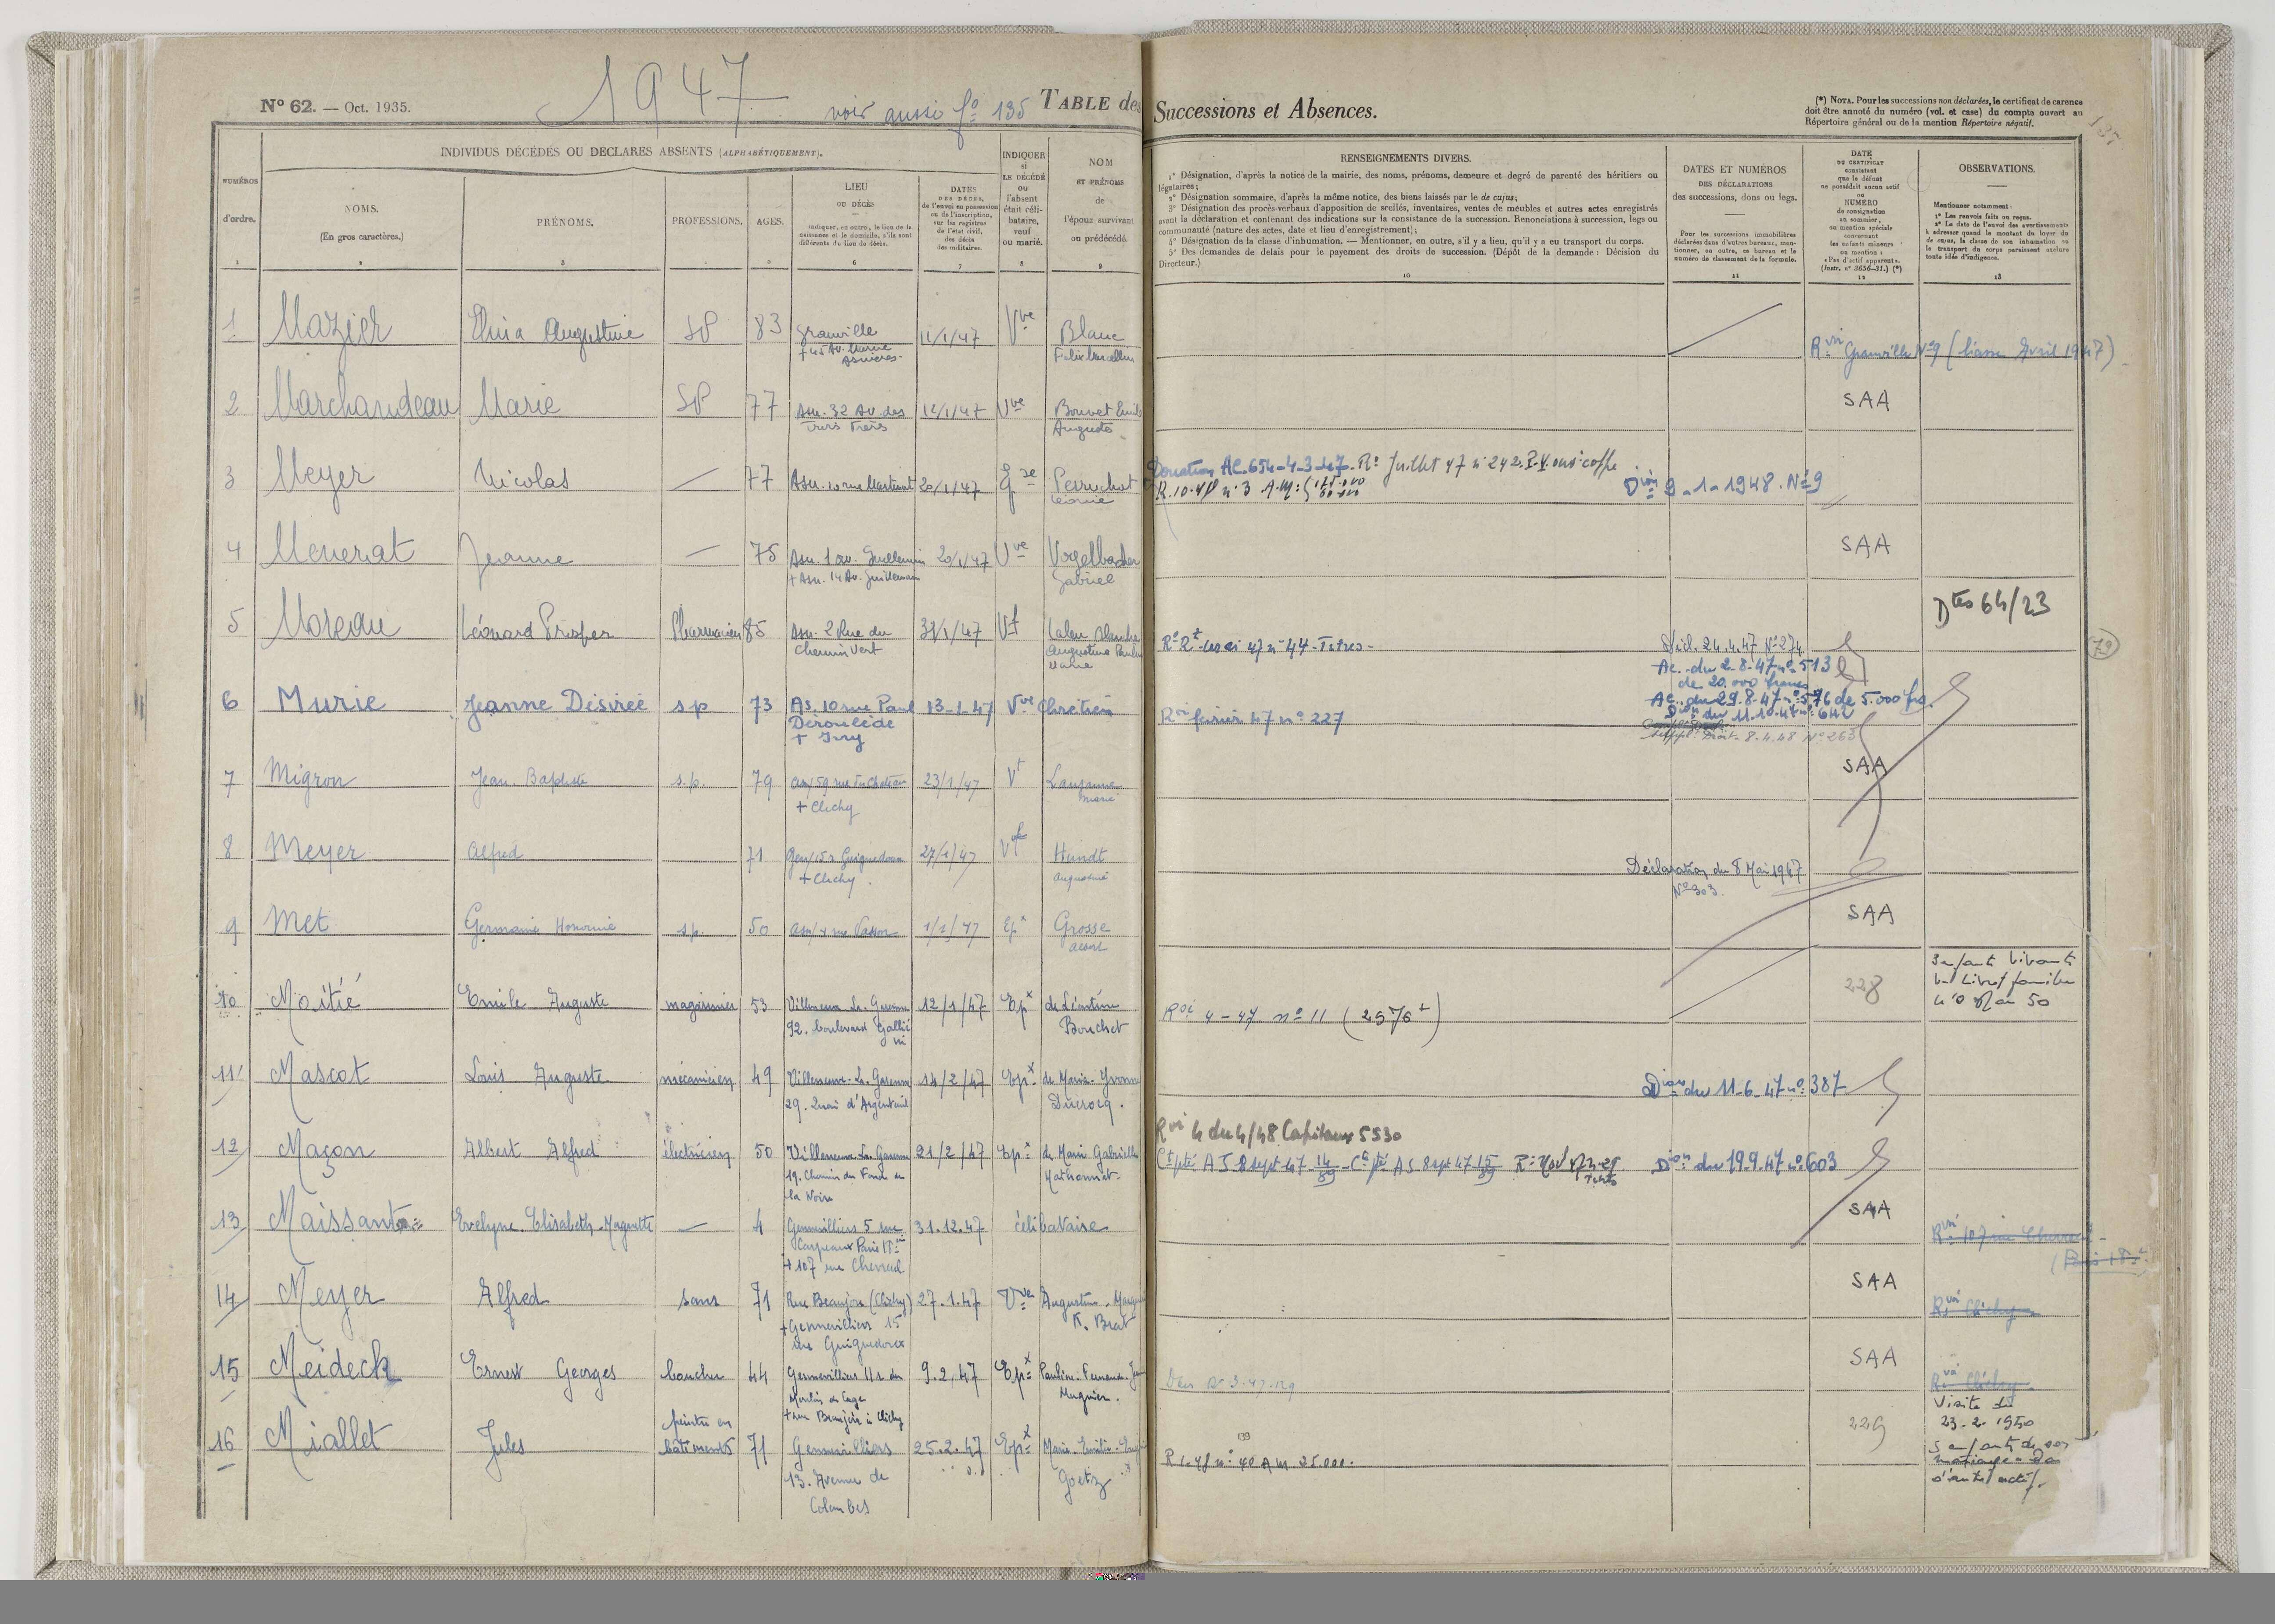 1947
N° 62. — Oct. 1935.
voir aussi f° 135
TABLE des Successions et Absences.
(*) NOTA. Pour les successions non déclarées, le certificat de carence
doit être annoté du numéro (vol. et case) du compte ouvert au
Répertoire général ou de la mention Répertoire négatif.
INDIVIDUS DÉCÉDÉS OU DÉCLARÉS ABSENTS (ALPHABÉTIQUEMENT).
NUMÉROS
d'ordre.
1
NOMS.
(En gros caractères.)
2
PRÉNOMS.
3
PROFESSIONS.
AGES.
LIEU
DU DÉCÈS
Indiquer, en outre, le lieu de la
naissance et le domicile, s'ils sont
différents du lieu du décès.
6
DATES
DES DÉCÈS,
de l'envoi en possession
ou de l'inscription,
sur les registres
de l'état civil,
des décès
des militaires.
7
INDIQUER
si
LE DÉCÉDÉ
ou
l'absent
était céli-
bataire,
veuf
ou marié.
8
NOM
ET PRÉNOMS
de
l'époux survivant
ou prédécédé.
9
RENSEIGNEMENTS DIVERS.
1° Désignation, d'après la notice de la mairie, des noms, prénoms, demeure et degré de parenté des héritiers ou
légataires;
2° Désignation sommaire, d'après la même notice, des biens laissés par le de cujus;
3° Désignation des procès-verbaux d'apposition de scellés, inventaires, ventes de meubles et autres actes enregistrés
avant la déclaration et contenant des indications sur la consistance de la succession. Renonciations à succession, legs ou
communauté (nature des actes, date et lieu d'enregistrement);
4° Désignation de la classe d'inhumation. — Mentionner, en outre, s'il y a lieu, qu'il y a eu transport du corps.
5° Des demandes de délais pour le payement des droits de succession. (Dépôt de la demande: Décision du
Directeur.)
10
DATES ET NUMÉROS
DES DÉCLARATIONS
des successions, dons ou legs.
Pour les successions immobilières
déclarées dans d'autres bureaux, men-
tionner, en outre, ce bureau et le
numéro de classement de la formule.
11
DATE
DU CERTIFICAT
constatant
que le défunt
ne possédait aucun actif
ou
NUMÉRO
de consignation
au sommier,
ou mention spéciale
concernant
les enfants mineurs
ou mention:
«Pas d'actif apparent».
(Instr. n° 3656-31.) (*)
12
OBSERVATIONS.
Mentionner notamment:
1° Les renvois faits ou reçus.
2° La date de l'envoi des avertissements
à adresser quand le montant du loyer du
de cujus, la classe de son inhumation ou
le transport du corps paraissent exclure
toute idée d'indigence.
13
1 Mazier Augustine SP 83 Granville 11/1/47 Vve Blanc
+ 45 Av. Marne
Asnières
Felix Marcellin
Rvoi Granville N° 9 (liasse Avril 1947)
2 Marchandeau Marie SP 77 Asn. 32 Av. des 12/1/47 Vve Bouvet Emile SAA
Trois Frères
Auguste
3 Meyer Nicolas — 77 Asn. 10 rue 20/1/47 Ep Perruchot
Léonie
Donation Ac. 654-4-3-47. Re Juillet 47 n° 242
R. 10.48 n° 3 A.M:
Dion 9-1-1948. N° 9
4 Menerat Jeanne — 75 Asn. 1 av. Guillemin 20/1/47 Vve Vogelbacher SAA
+ Asn. 14 Av. Guillemin
Gabriel
5 Moreau Léonard Prosper Pharmacien 85 Asn. 2 Rue du 31/1/47 Vf
Chemin Vert
Augustine
Marie
47 n° 44 - Titres -
Décl. 24.4.47 N° 274
Dtes 64/23
79
Ac. du 2-8-47 n° 513
de 20.000 francs
6 Murie Jeanne Désirée s p 73 As. 10 rue Paul 13-1-47 Vve Chrétien
Déroulède
+ Ivry
Rvoi février 47 n° 227
Ac. du 29.8.47 n° 576 de 5.000 frs.
Dion du 11.10.47 n° 642
Droit 8.4.48 N° 263
7 Migron Jean-Baptiste s.p. 79 Asn/59 rue du Château 23/1/47 Vf Lanjanne SAA
+ Clichy
Marie
8 Meyer Alfred 71 Gen/15 r Guignedoux 27/1/47 Vf Hundt
+ Clichy.
Augustine
Déclaration du 8 Mai 1947
N° 303.
9 Met Germaine Honorine s.p. 50 1/2/47 Epx Grosse SAA
Albert
10 Moitié Emile Auguste magasinier 53 Villeneuve-La-Garenne 12/1/47 Epx de Léontine
92. boulevard Galliéni
Bouchet
Rvoi 4-47 n° 11 228
11 Mascot Louis Auguste mécanicien 49 Villeneuve-La-Garenne 14/2/47 Epx de Marie-Yvonne
29. Quai d'Argenteuil
Ducrocq.
Dion du 11-6-47 n° 387
12 Maçon Albert Alfred électricien 50 Villeneuve-La-Garenne 21/2/47 Epx de Marie Gabrielle
19. Chemin du Fond de
la Noire
Mathonnet
Rvoi 4 du 4/48 Capitaux 5530
Dion du 19.9.47 n° 603
13 Maissant Evelyne-Elisabeth — 4 Gennevilliers 5 rue 31.12.47 célibataire SAA
Carpeaux Paris 18e
+ 107 rue
14 Meyer Alfred sans 71 Rue Beaujon (Clichy) 27.1.47 Vve Augustine SAA
+ Gennevilliers 15
rue Guignedoux
Rvoi Clichy
15 Meideck Ernest Georges boucher 44 Gennevilliers 11 r du 9.2.47 Epx Pauline-Fernande SAA
Moulin de Cage
+ rue Beaujon à Clichy
Mugnier.
Rvoi Clichy
16 Miallet Jules peintre en
bâtiments 71 Gennevilliers 25.2.47 Epx Marie-Emilie
13. Avenue de
Colombes
Goetz
R 1.48 n° 40 A M 25.000. 229
Visite du
23-2-1950